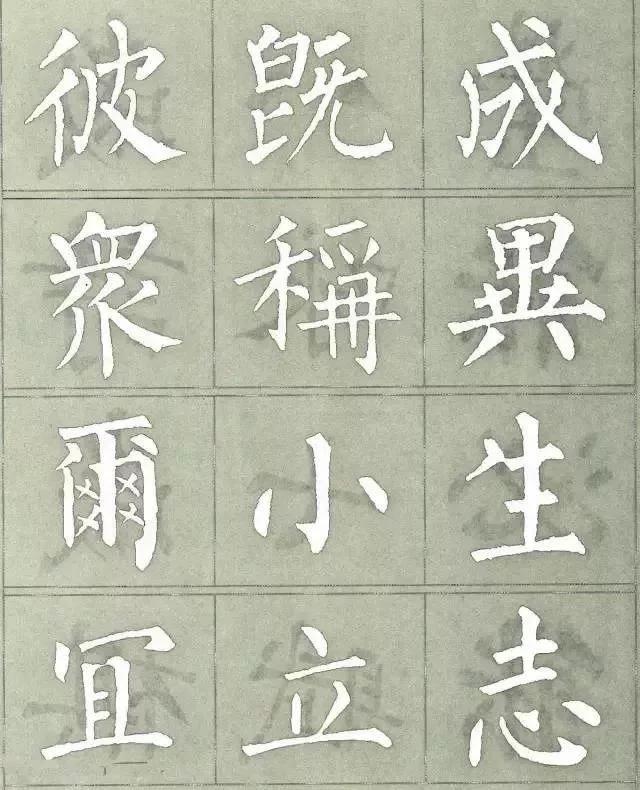 旣成
衆稱異
爾小生
冝立志